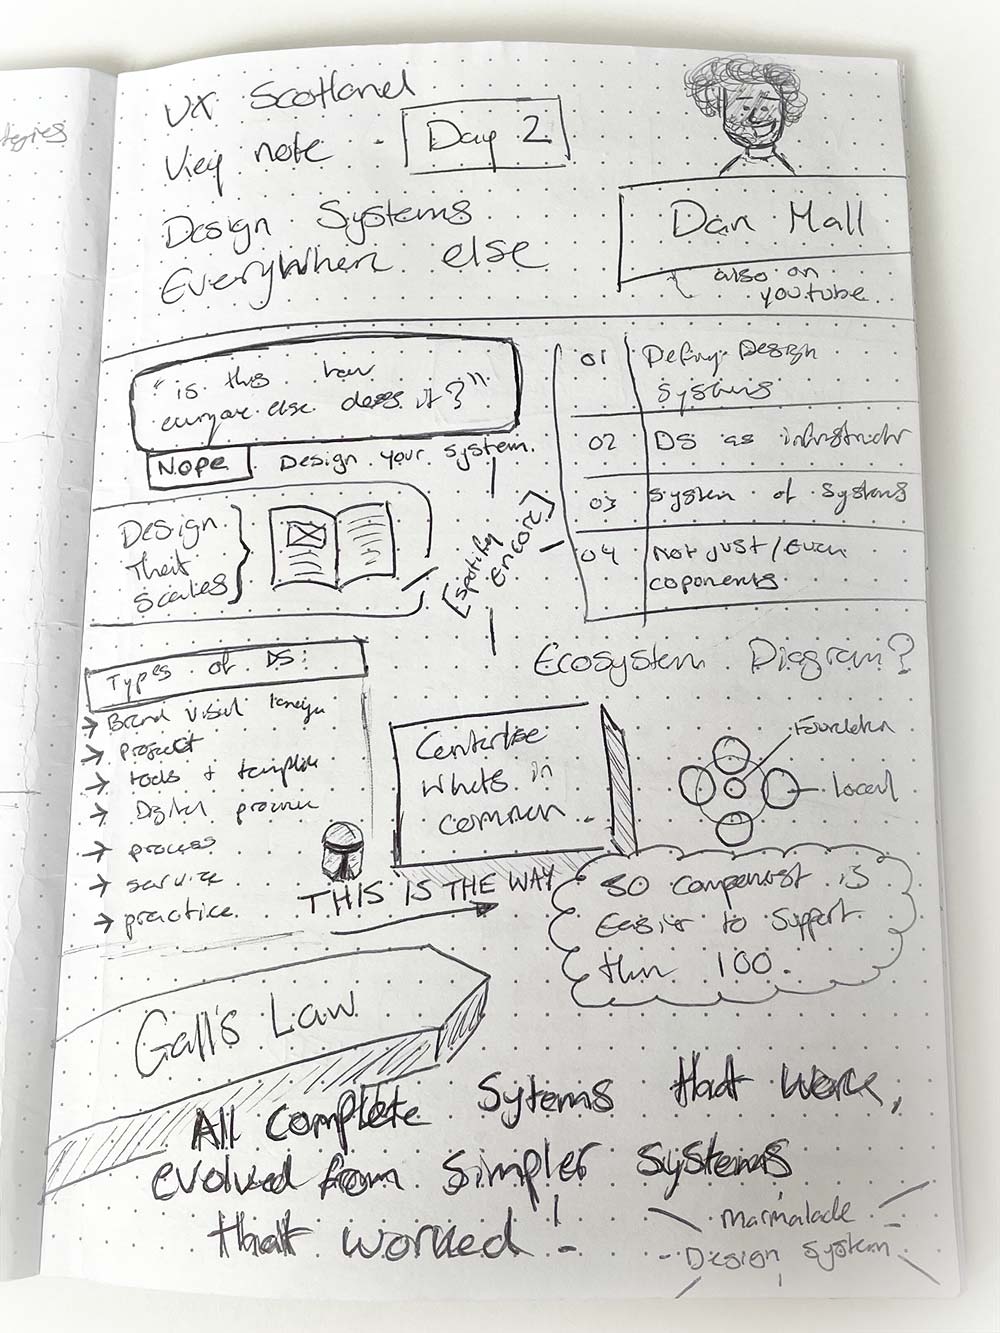 UX Scotland
Key note
Day 2
Design Systems
Everywhere else
Dan Mall
also on
youtube
"is this how
everyone else does it?"
Nope
Design your system.
Design
that
scales
[Spotify
Encore]
01 Design
systems
02 DS as
03 System of Systems
04 Not just/Even
coponents
Ecosystem Diagram?
Types of DS:
→ Brand visual
→ Product
→ tools + template
→ Digital
→ process
→ service
→ practice.
Centerlise
whats in
common
Foundation
Local
THIS IS THE WAY
50 componest is
Easier to support
than 100.
Gall's Law
All complete Sytems that work,
evolved from simpler systems
that worked!
Marmalade
Design system